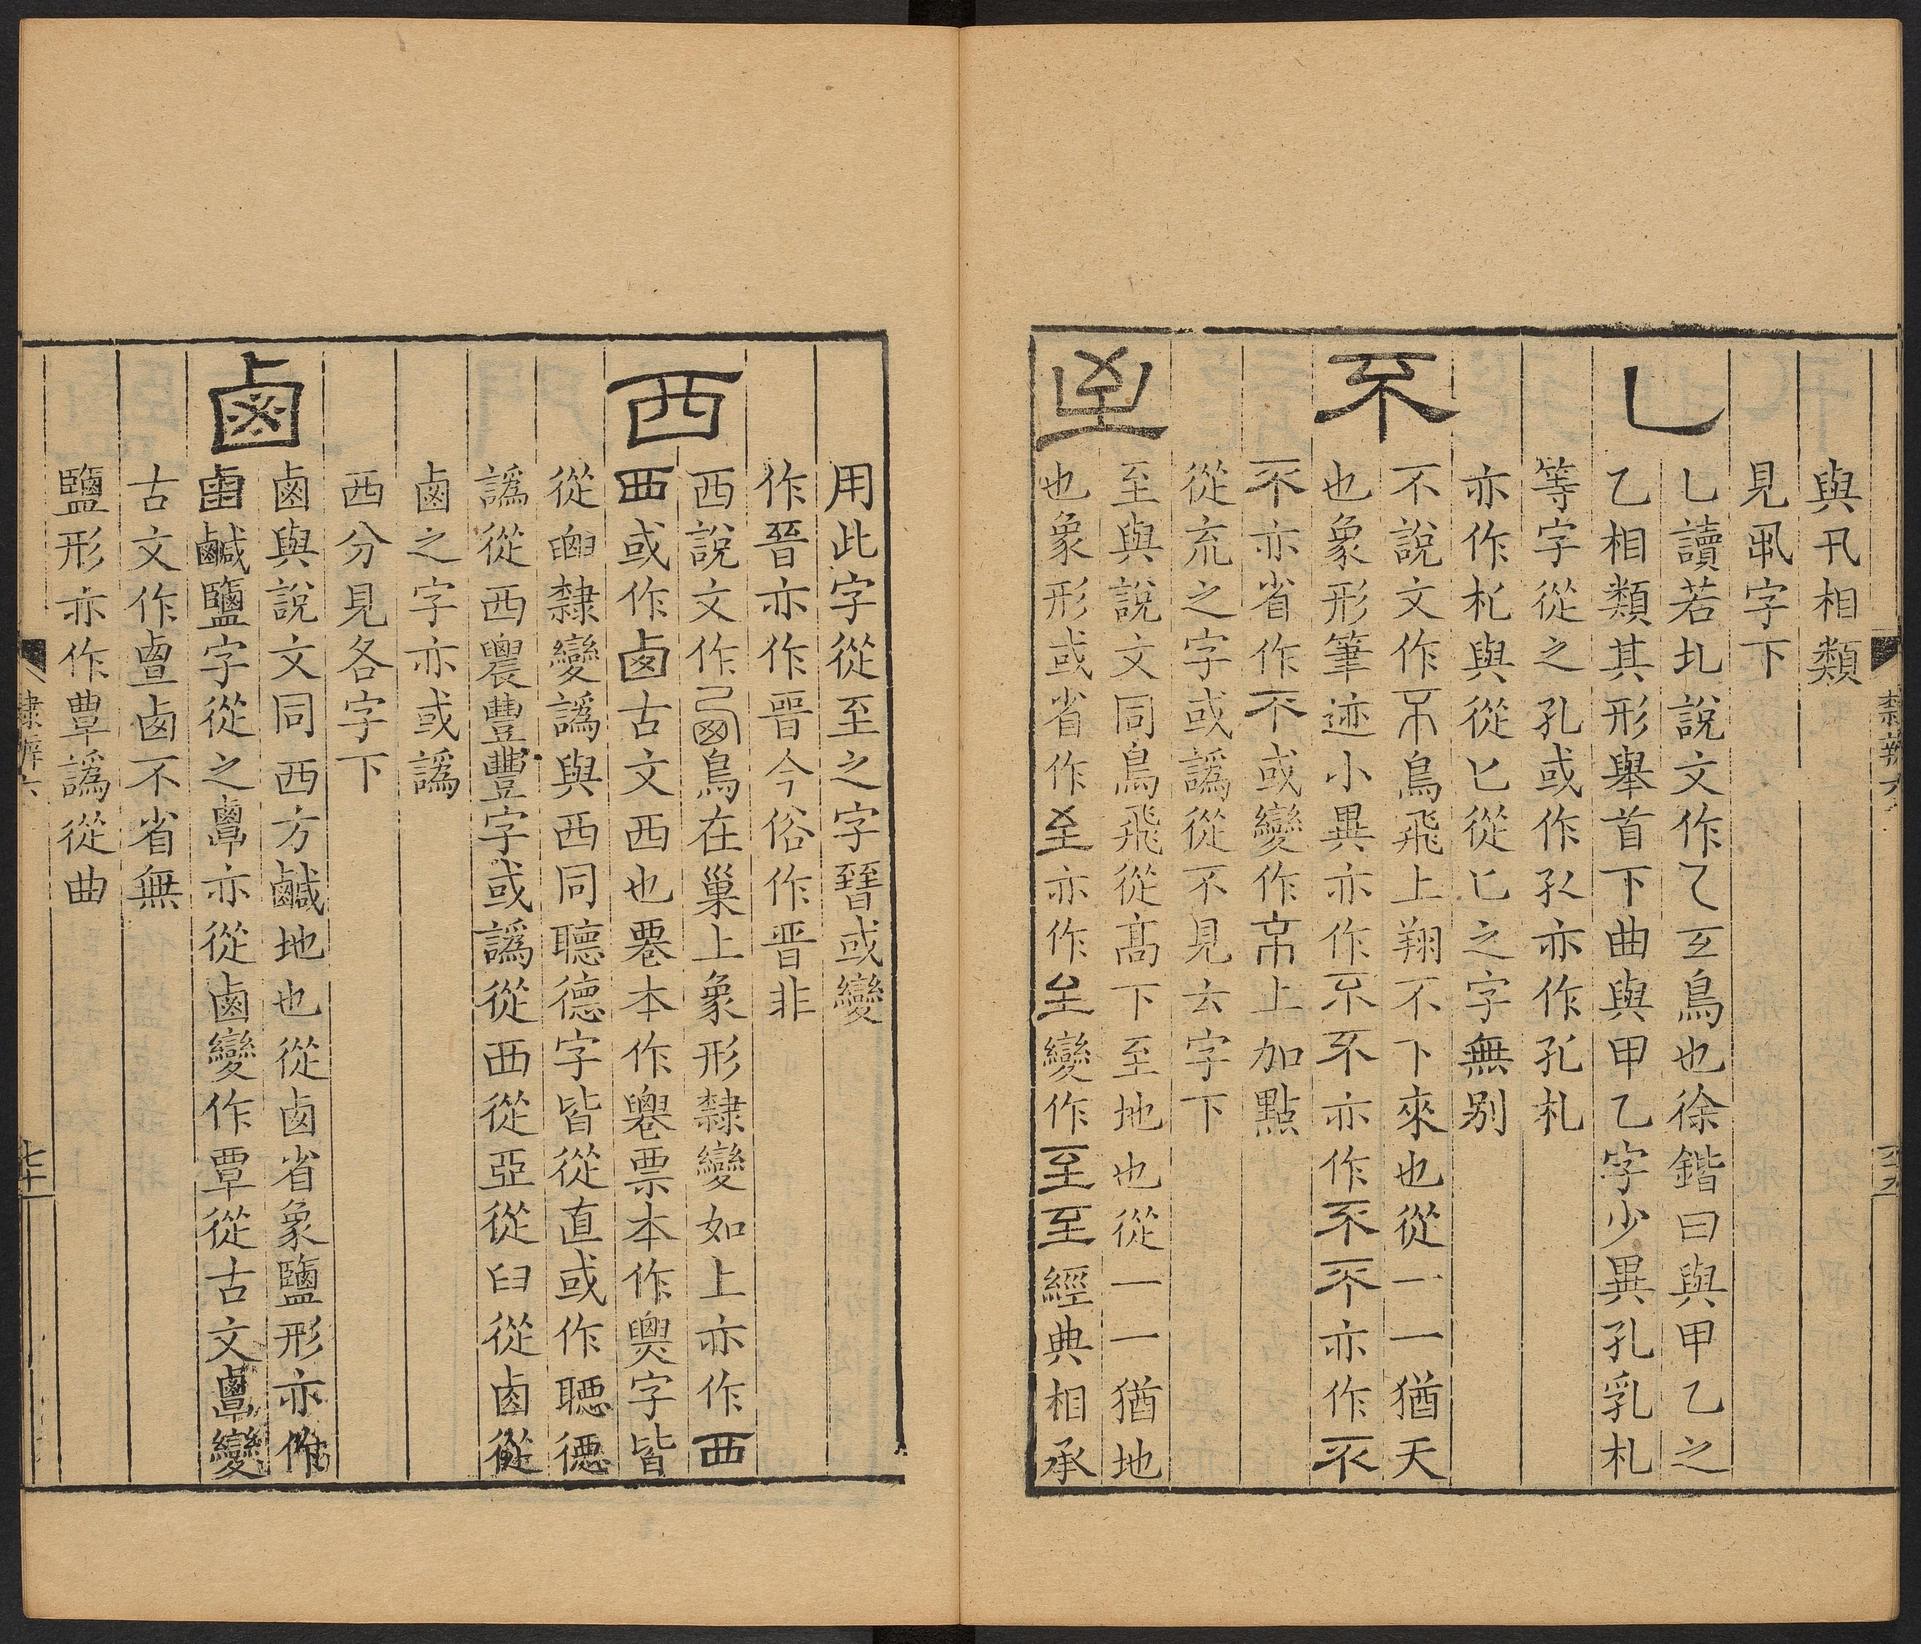 與卂相類
見凧字下
乚
乚讀若圠說文作乙玄鳥也徐鍇曰與甲乙之
乙相類其形舉首下曲與甲乙字少異孔乳札
等字從之孔或作𡥀亦作孔札
亦作札與從匕從匸之字無别
不
不說文作不鳥飛上翔不下來也從一一猶天
也象形筆迹小異亦作不不亦作不不亦作不
不亦省作不或變作帀上加點
從㐬之字或譌從不見𠫓字下
至
至與說文同鳥飛從高下至地也從一一猶地
也象形或省作至亦作至變作至至經典相承
用此字從至之字臸或變
作晉亦作晋今俗作晋非
西
西說文作鳥在巢上象形隸變如上亦作西
西或作卤古文西也䙴本作䙴票本作㷠字皆
從囟隸變譌與西同聽德字皆從直或作聽德
譌從西農豐豐字或譌從西從亞從臼從鹵從
鹵之字亦或譌
西分見各字下
鹵
鹵與說文同西方鹹地也從卤省象鹽形亦作
鹹鹽字從之𪉷亦從鹵變作覃從古文變
古文作卤不省無
鹽形亦作覃譌從曲
隸辨六
六十九
隸辨六
七十